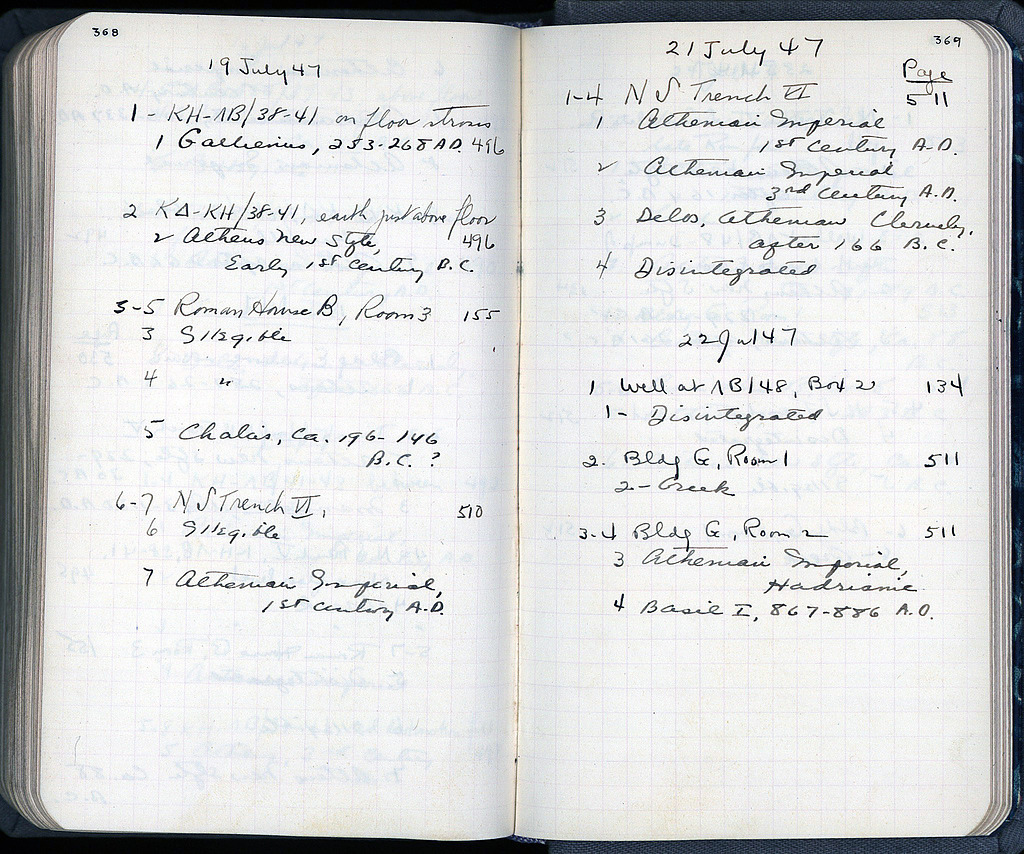 368
19 July 47
1 - KH-ΛB/38-41 on floor strosis
1 Gallienus, 253-268 A.D. 496
2 KΔ-KH/38-41, earth just above floor
2 Athens New Style, 496
Early 1st century B.C.
3-5 Roman House B, Room 3 155
3 Illegible
4 "
5 Chalcis, Ca. 196-146
B.C. ?
6-7 NS Trench VI, 510
6 Illegible
7 Athenian Imperial,
1st century A.D.
369
21 July 47
Page
1-4 NS Trench VI 511
1 Athenian Imperial
1st century A.D.
2 Athenian Imperial
3rd century A.D.
3 Delos, Athenian Cleruchy,
after 166 B.C.
4 Disintegrated
22 Jul 47
1 Well at ΛB/48, Box 2 134
1- Disintegrated
2. Bldg G, Room 1 511
2- Greek
3-4 Bldg G, Room 2 511
3 Athenian Imperial,
Hadrianic
4 Basil I, 867-886 A.D.